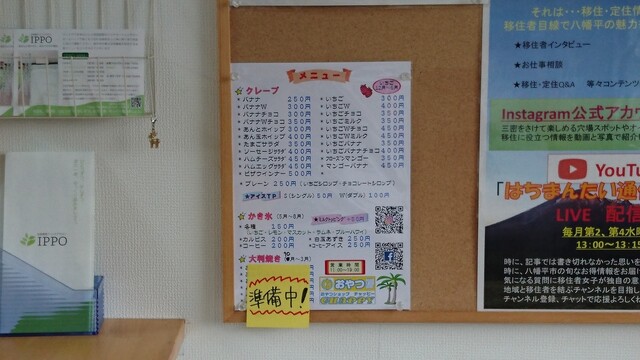 IPPO
メニュー
★ クレープ
いちご
12月~5月
・バナナ 250円
・バナナW 300円
・バナナチョコ 300円
・バナナWチョコ 350円
・あんとホイップ 300円
・あんWホイップ 400円
・たまごサラダ 350円
・ソーセージサラダ 450円
・ハムチーズサラダ 450円
・ピザウインナー 500円
・いちご 300円
・いちごW 400円
・いちごチョコ 350円
・いちごミルク 350円
・いちごWチョコ 450円
・いちごWミルク 450円
・いちごバナナ 350円
・いちごバナナチョコ 400円
・フローズンマンゴー 350円
・マンゴーバナナ 450円
・プレーン 250円 (いちごシロップ・チョコレートシロップ)
★アイスTP S(シングル)50円 W(ダブル)100円
★ かき氷
・各種 150円
(いちご・レモン・マスカット・ラムネ・ブルーハワイ)
・カルピス 200円
・コーヒー 200円
・白玉あずき 250円
・コーヒーアイス 250円
★ 大判焼き
準備中!
営業時間
11:00~18:00
おやつ屋
IPPO
それは・・・移住・定住情
移住者目線で八幡平の魅力
★移住者インタビュー
★お仕事相談
★移住・定住Q&A 等々コンテンツ
Instagram公式アカウ
三密をさけて楽しめる穴場スポットやオ
移住に役立つ情報を動画と写真で紹介
YouTu
「はちまんたい通
LIVE 配信
毎月第2、第4水曜
13:00~13:15
時に、記事では書き切れなかった思いを
時に、八幡平市の旬なお得情報をお届
気になる質問に移住者女子が独自の意
地域と移住者を結ぶチャンネルを目指し
チャンネル登録、チャットで応援よろしく